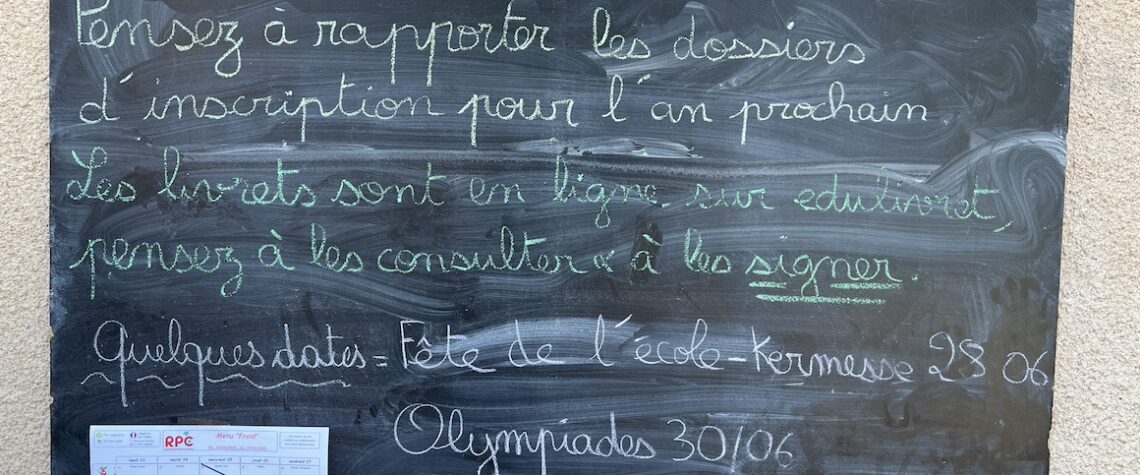 Pensez à rapporter les dossiers
d'inscription pour l'an prochain.
Les livrets sont en ligne sur edulivret,
pensez à les consulter & à les signer.
Quelques dates = Fête de l'école - Kermesse 28 06
Olympiades 30/06
RPC
Menu "Froid"
lundi 24 mardi 25 mercredi 26 jeudi 27 vendredi 28